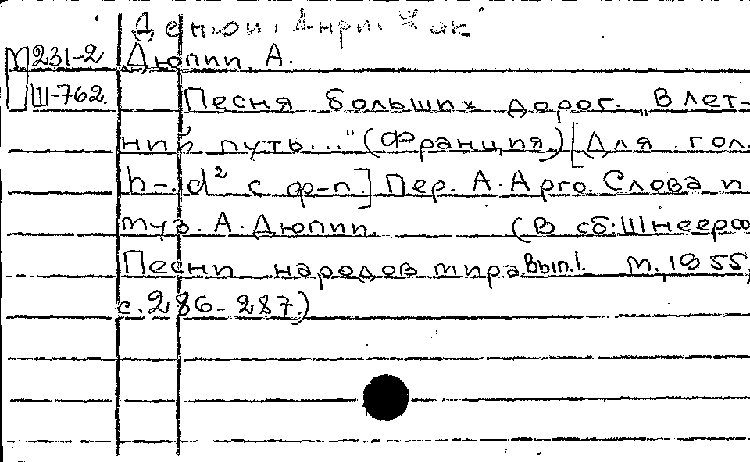 Анри Жак
М231-2 Дюпии, А.
Ш-762.
Песня больших дорог. „В лет-
ний путь..." (Франция.) [Для гол.
h-d² с ф-п.] Пер. А. Арго. Слова и
муз. А. Дюпии. (В сб: Шнеерсо
Песни народов мира Вып.1. М., 1955,
с. 286-287.)